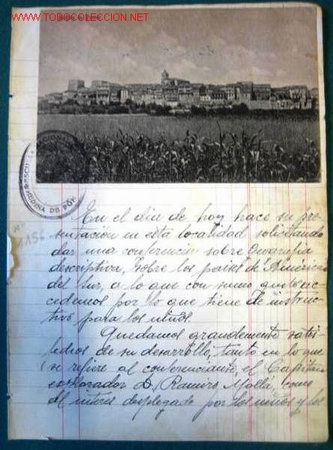 WWW.TODOCOLECCION.NET
MEDINA DE POM
1156
En el dia de hoy hace su pre
sentación en esta localidad solicitando
dar una conferencia sobre Geografia
descriptiva, sobre los paises de América
del Sur, a lo que con sumo gusto ac
cedemos por lo que tiene de instruc
tivo para los niños.
Quedamos grandemente satis
fechos de su desarrollo, tanto en lo que
se refiere al conferenciante, el Capitán
explorador D. Ramiro como
del interes desplegado por los niños y